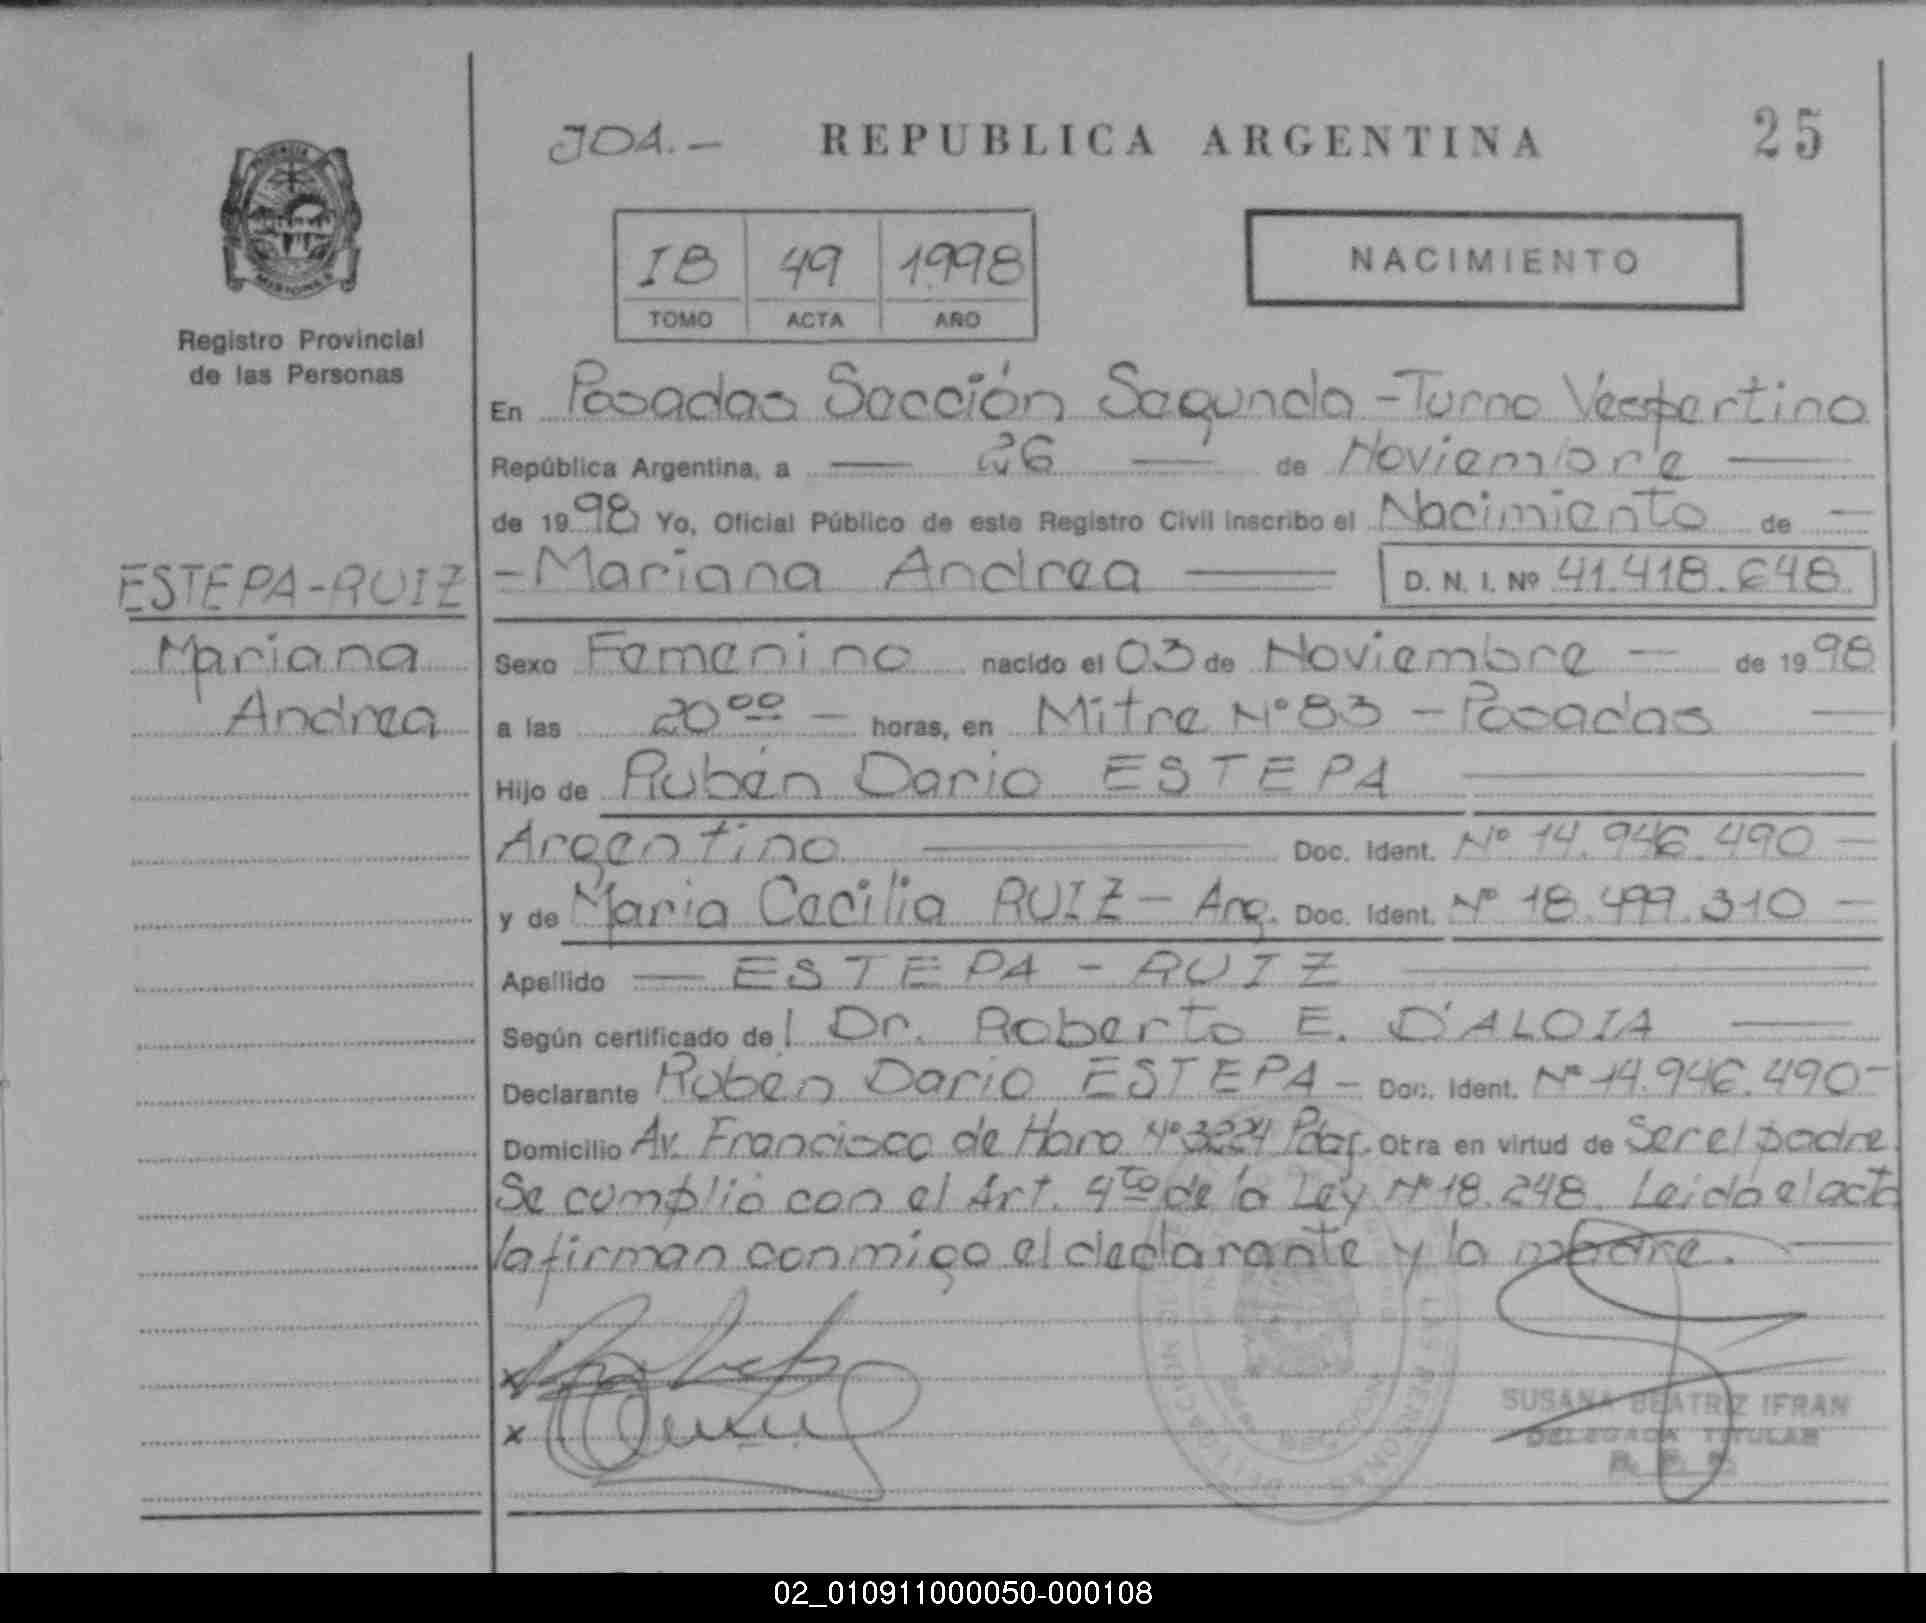 JOA.- REPUBLICA ARGENTINA 25
IB 49 1.998
TOMO ACTA AÑO
NACIMIENTO
Registro Provincial
de las Personas
En Posadas Sección Segunda - Turno Vespertino
República Argentina, a — 26 — de Noviembre —
de 1998 Yo, Oficial Público de este Registro Civil inscribo el Nacimiento de —
- Mariana Andrea — D. N. I. Nº 41.418.648.
ESTEPA-RUIZ
Mariana
Andrea
Sexo Femenino nacido el 03 de Noviembre — de 1998
a las 20 00 — horas, en Mitre Nº 83 - Posadas —
Hijo de Rubén Dario ESTEPA
Argentino — Doc. Ident. Nº 14.946.490 —
y de Maria Cecilia RUIZ - Arg. Doc. Ident. Nº 18.499.310 —
Apellido — ESTEPA - RUIZ
Según certificado del Dr. Roberto E. D'ALOIA —
Declarante Rubén Dario ESTEPA - Doc. Ident. Nº 14.946.490 -
Domicilio Av. Francisco de Haro Nº 3224 Pdas. Otra en virtud de Ser el padre
Se cumplió con el Art. 4to de la Ley Nº 18.248. Leida el acta
la firman conmigo el declarante y la madre. —
x
x
SUSANA BEATRIZ IFRAN
DELEGADA TITULAR
R. P. P.
02_010911000050-000108